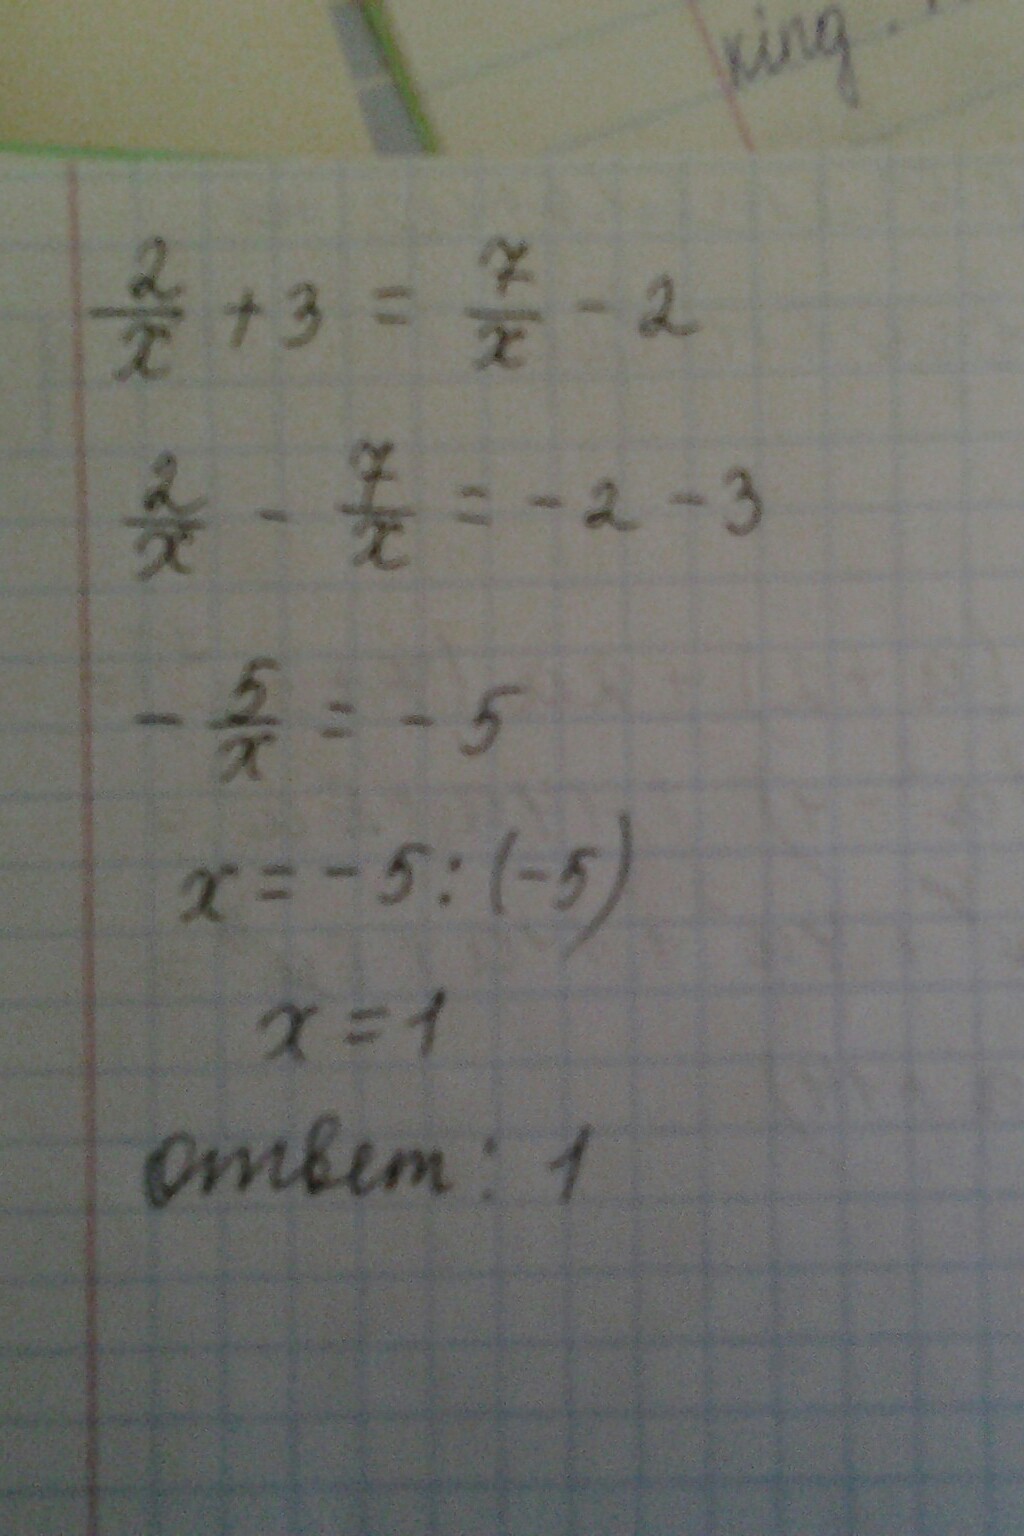 xing.
2/x + 3 = 7/x - 2
2/x - 7/x = -2 - 3
- 5/x = -5
x = -5 : (-5)
x = 1
ответ: 1